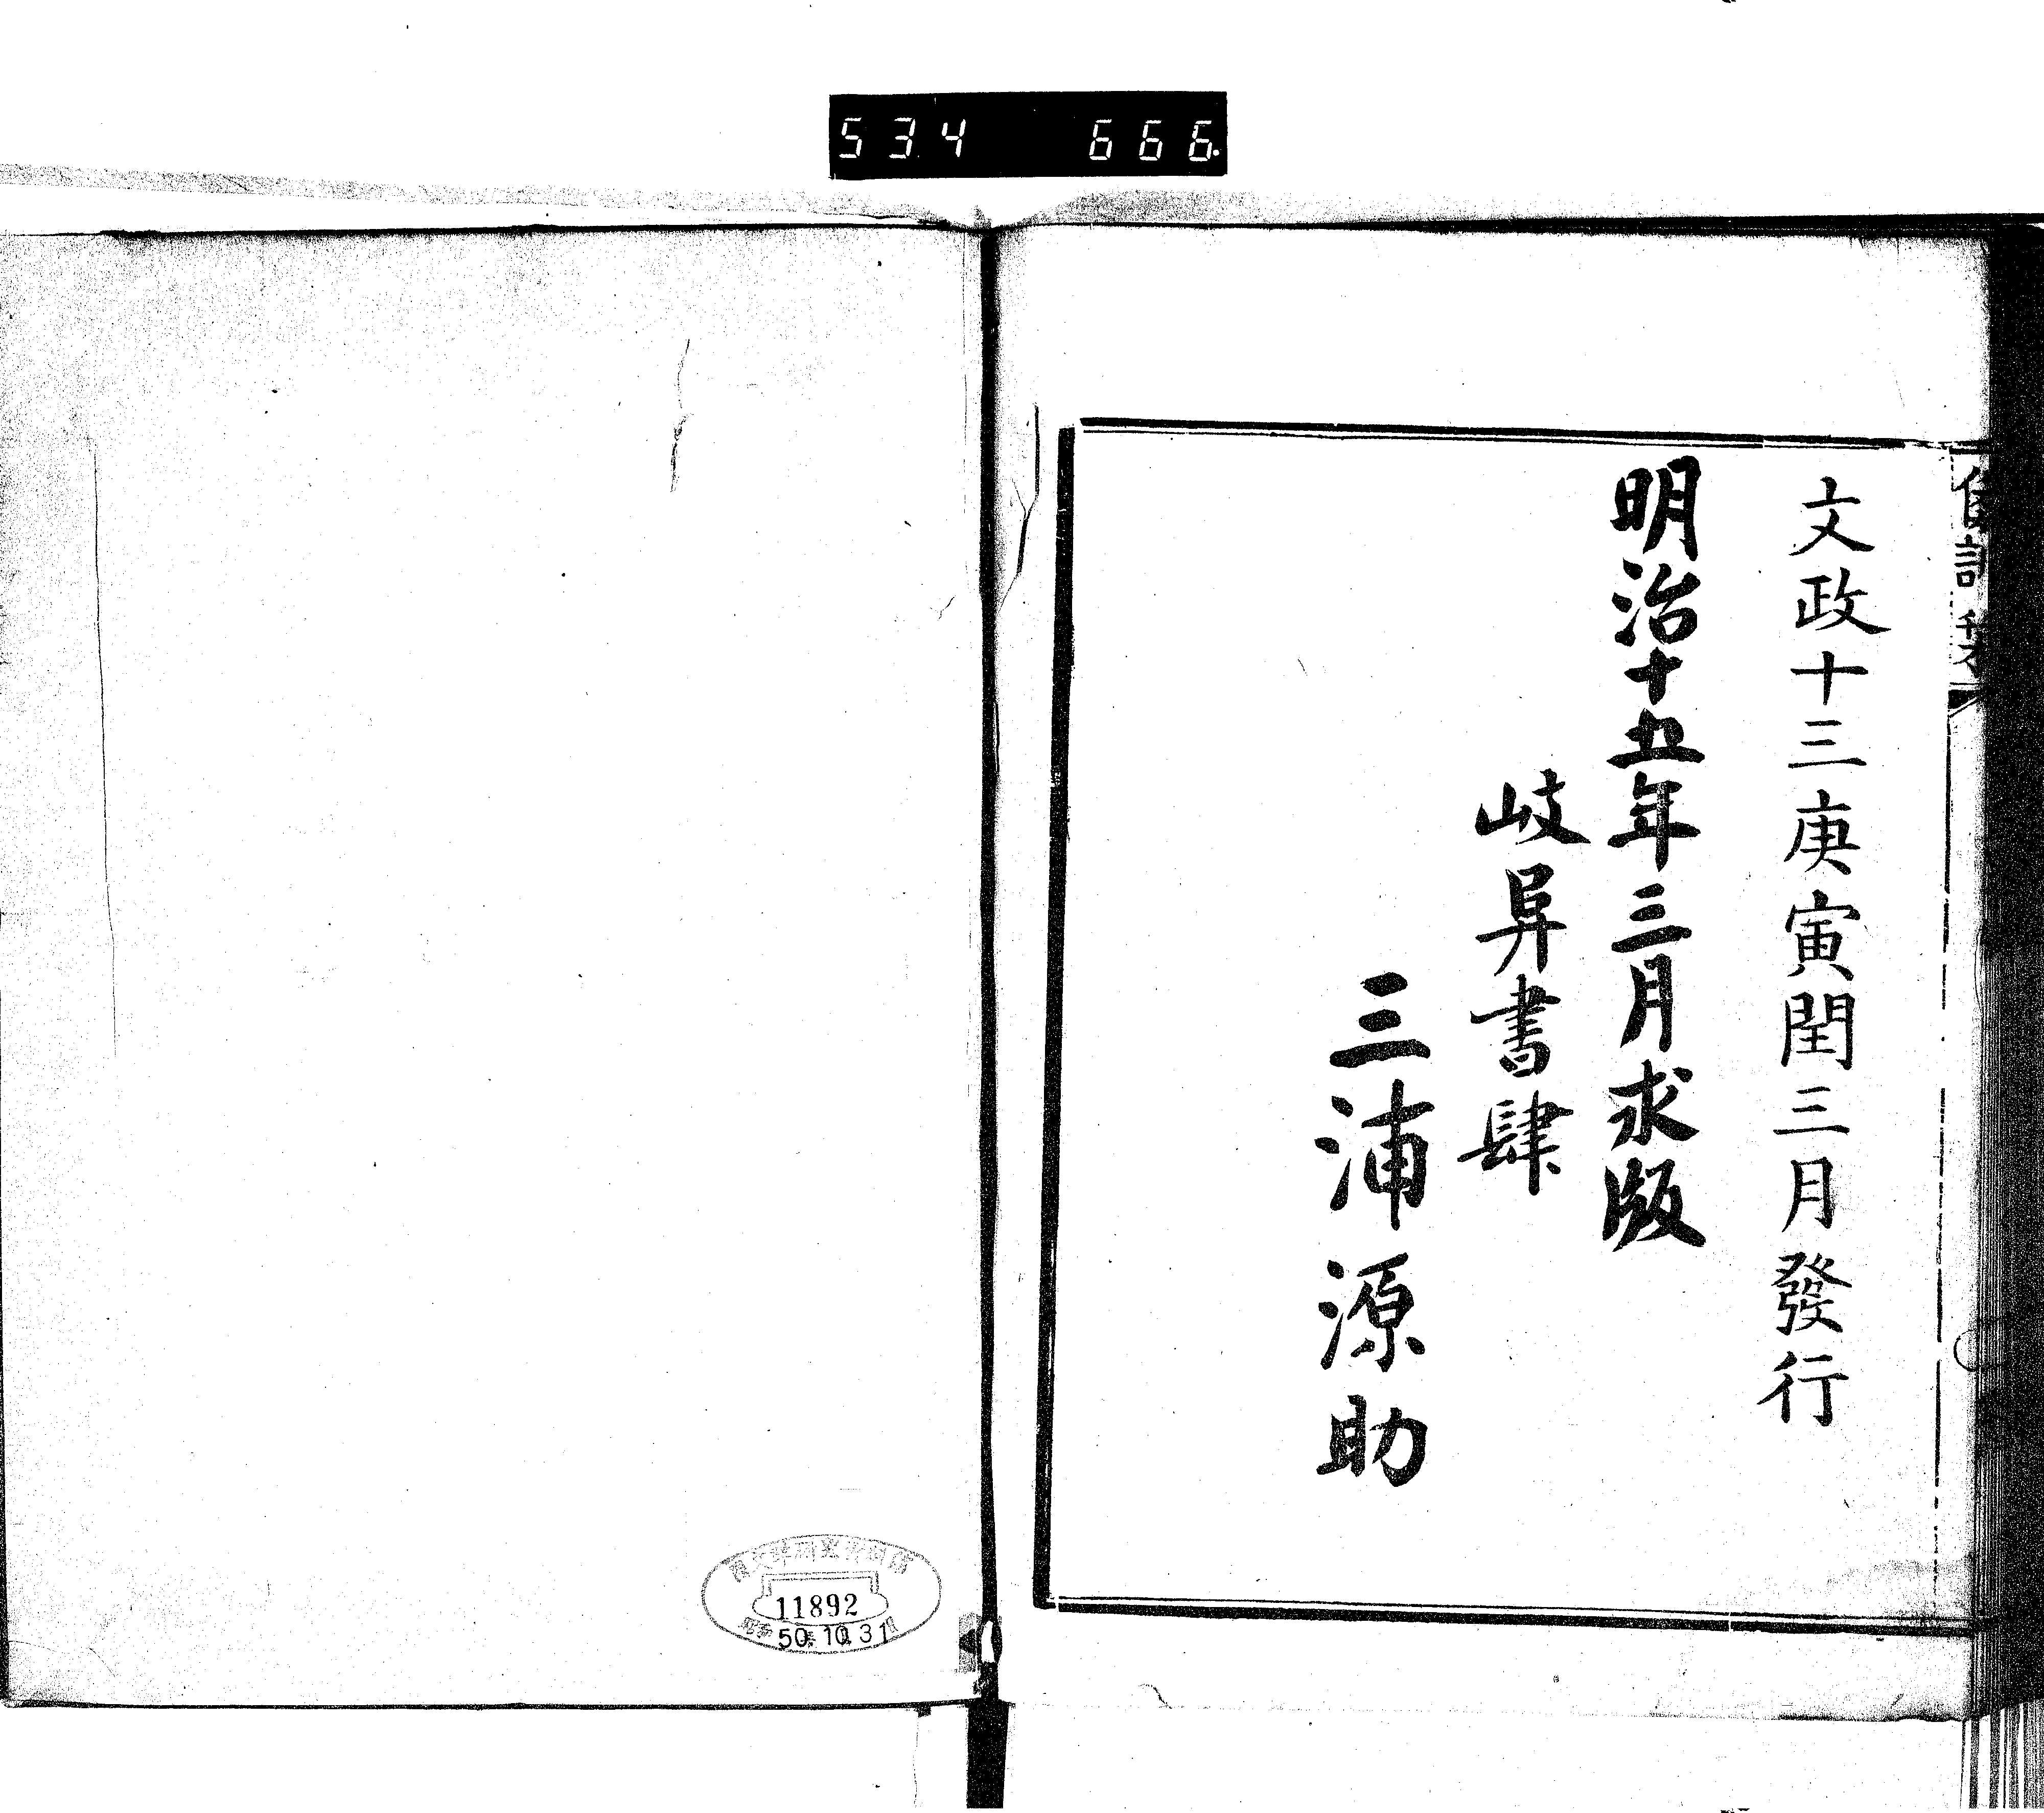 534 666.
文政十三庚寅閏三月發行
明治十五年三月求版
岐阜書肆
三浦源助
11892
50.10.31